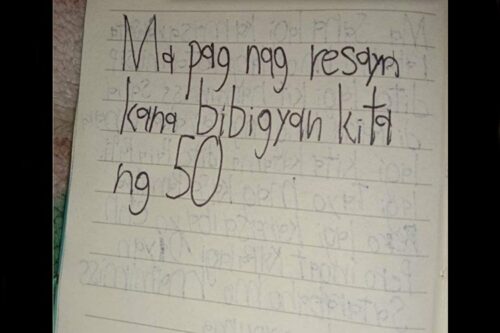 Ma pag nag resayn
kana bibigyan kita
ng 50